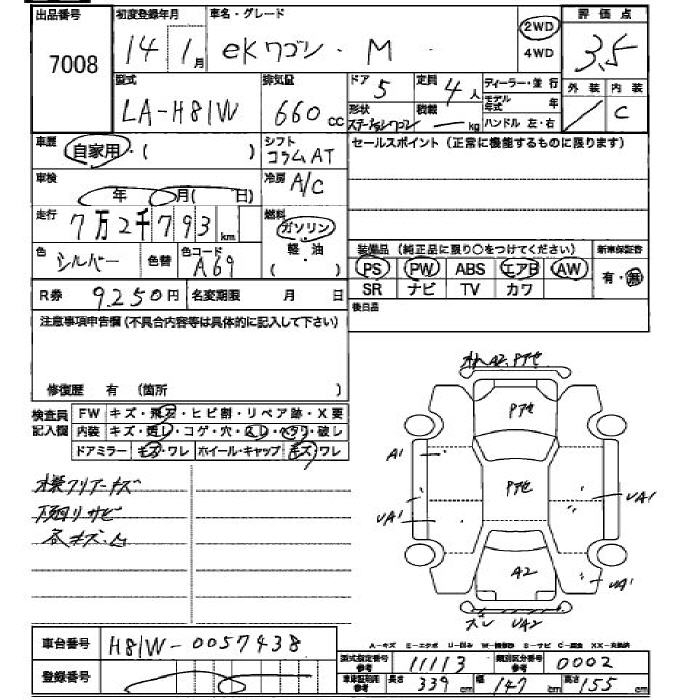 出品番号 初度登録年月 車名・グレード 評価点
7008 14 1月 eKワゴン・M 2WD 4WD 3.5
型式 排気量 ドア 5 定員 4人 ディーラー・並行 外装 内装
LA-H81W 660cc 形状 ステーションワゴン 積載 kg モデル年式 年 ハンドル 左・右 C
車歴 自家用・( ) シフト コラムAT セールスポイント (正常に機能するものに限ります)
車検 年 月( 日) 冷房 A/C
走行 7万2千793km 燃料 ガソリン 軽・油 ( )
色 シルバー 色替 色コード A69
装備品 (純正品に限り○をつけてください) 新車保証書
PS PW ABS エアB AW 有・無
SR ナビ TV カワ
R券 9250円 名変期限 月 日 後日品
注意事項申告欄 (不具合内容等は具体的に記入して下さい)
修復歴 有 (箇所 )
検査員記入欄 FW キズ・飛石・ヒビ割・リペア跡・X要
内装 キズ・汚レ・コゲ・穴・スレ・ヘタリ・破レ
ドアミラー キズ・ワレ ホイール・キャップ キズ・ワレ
下廻リサビ
各キズ・凹
A2. Pアセ
Pアセ
A1
Pアセ
UA1
UA1
A2
UA1
ズレ UA2
車台番号 H81W-0057438
登録番号
型式指定番号参考 11113 類別区分番号参考 0002
車体証明用参考 長さ 339cm 幅 147cm 高さ 155cm